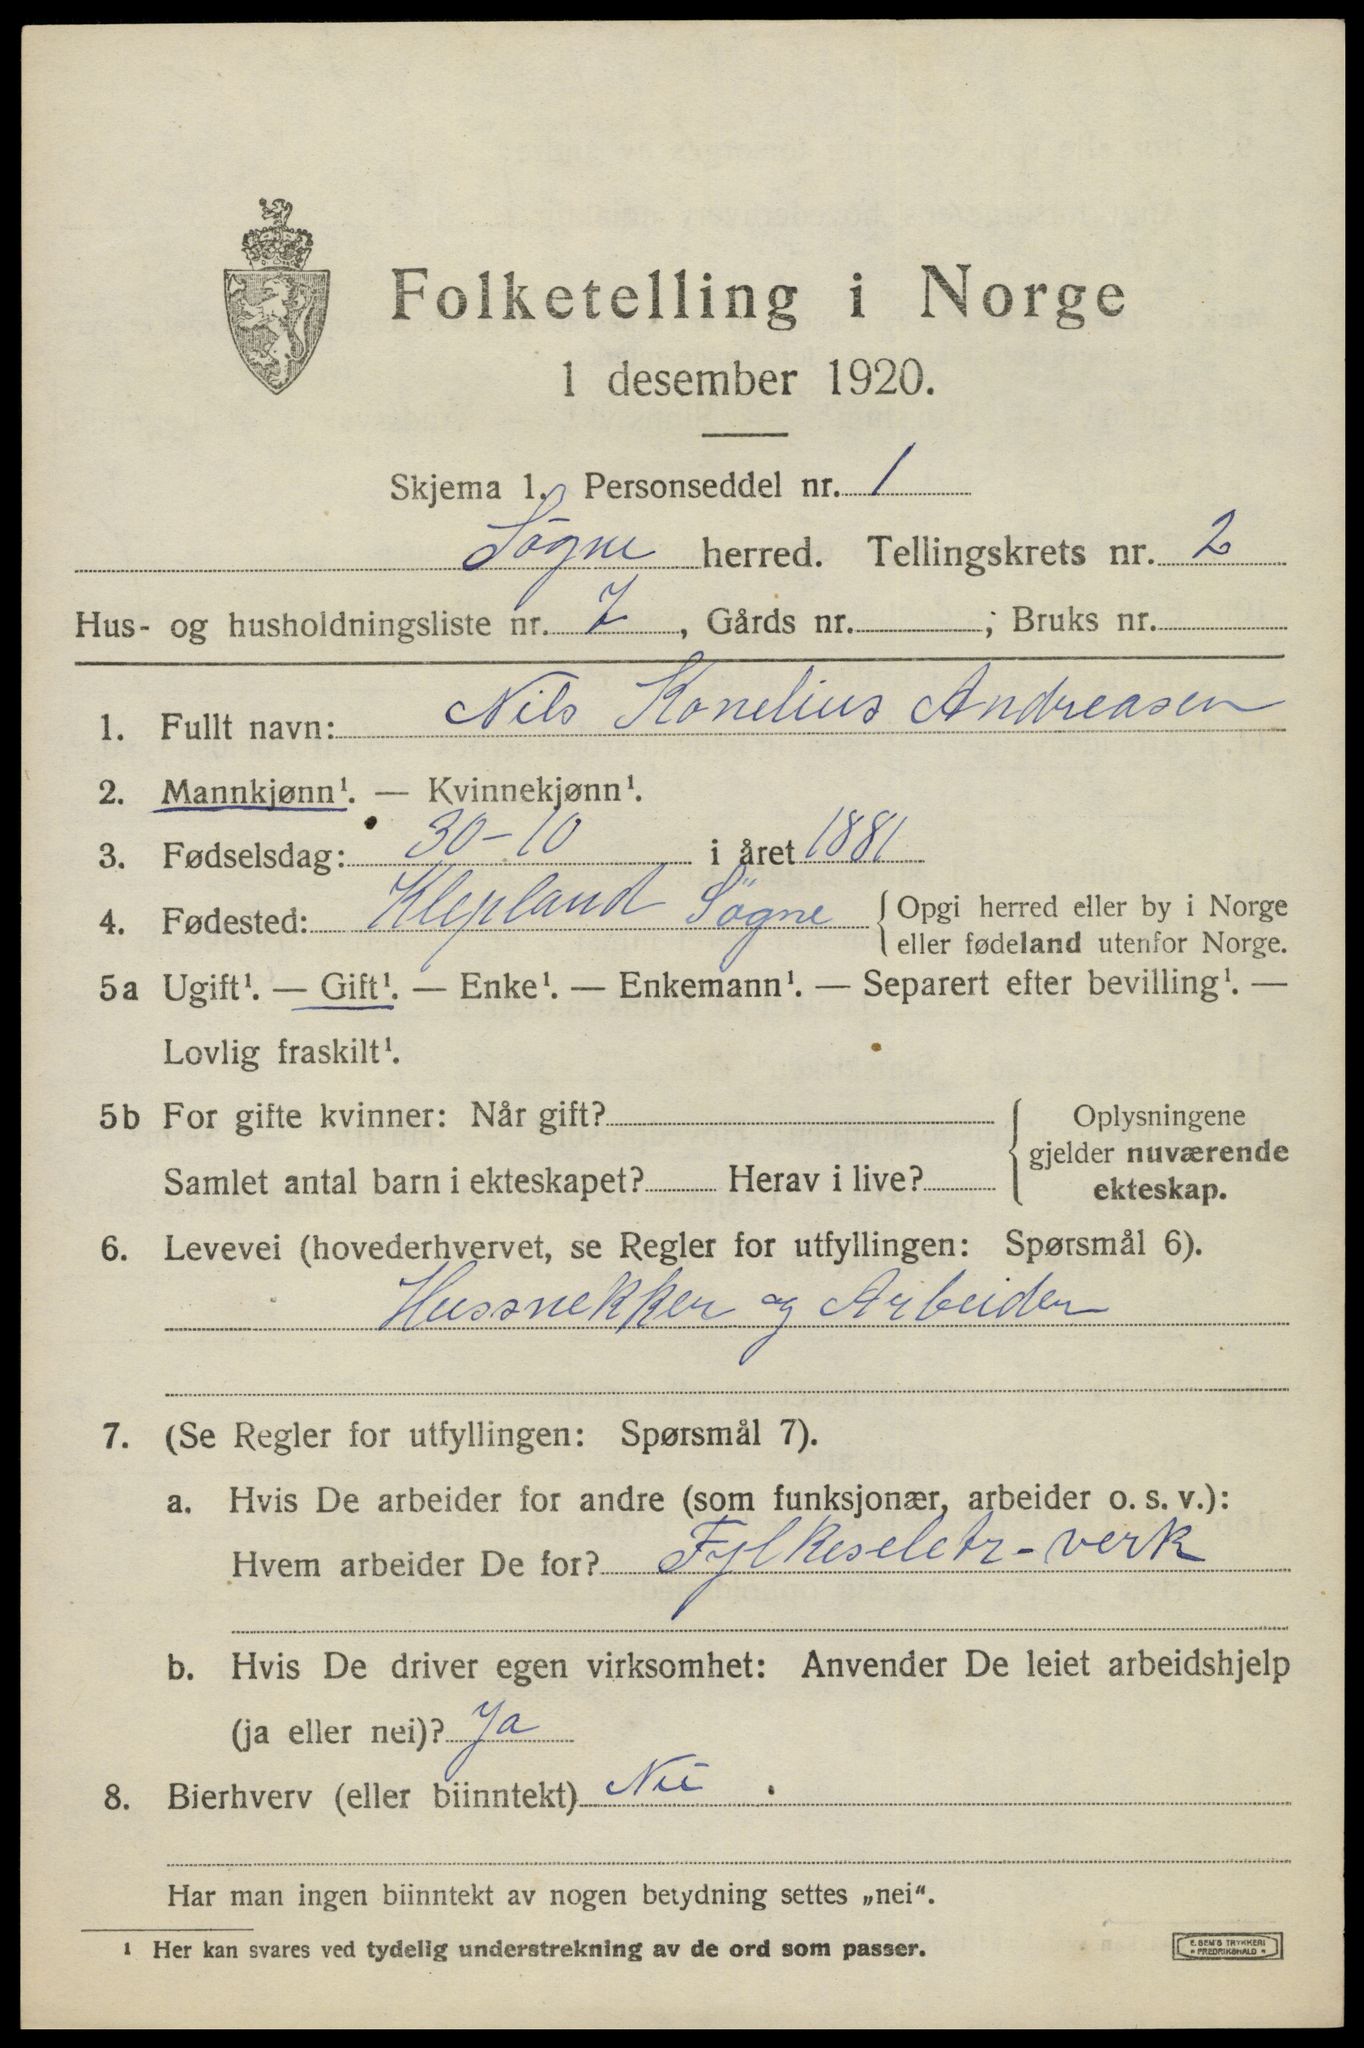 Folketelling i Norge
1 desember 1920.
Skjema 1. Personseddel nr. 1
Søgne herred. Tellingskrets nr. 2
Hus- og husholdningsliste nr. 7, Gårds nr. ; Bruks nr.
1. Fullt navn: Nils Konelius Andreasen
2. Mannkjønn¹. — Kvinnekjønn¹.
3. Fødselsdag: 30-10 i året 1881
4. Fødested: Klepland Søgne { Opgi herred eller by i Norge
eller fødeland utenfor Norge.
5a Ugift¹. — Gift¹. — Enke¹. — Enkemann¹. — Separert efter bevilling¹. —
Lovlig fraskilt¹.
5b For gifte kvinner: Når gift? { Oplysningene
gjelder nuværende
Samlet antal barn i ekteskapet? Herav i live? ekteskap.
6. Levevei (hovederhvervet, se Regler for utfyllingen: Spørsmål 6).
Hussnekker og Arbeider
7. (Se Regler for utfyllingen: Spørsmål 7).
a. Hvis De arbeider for andre (som funksjonær, arbeider o. s. v.):
Hvem arbeider De for? Fylkeseletr-verk
b. Hvis De driver egen virksomhet: Anvender De leiet arbeidshjelp
(ja eller nei)? Ja
8. Bierhverv (eller biinntekt) Nei
Har man ingen biinntekt av nogen betydning settes „nei“.
¹ Her kan svares ved tydelig understrekning av de ord som passer.
E. SEM'S TRYKKERI
FREDRIKSHALD